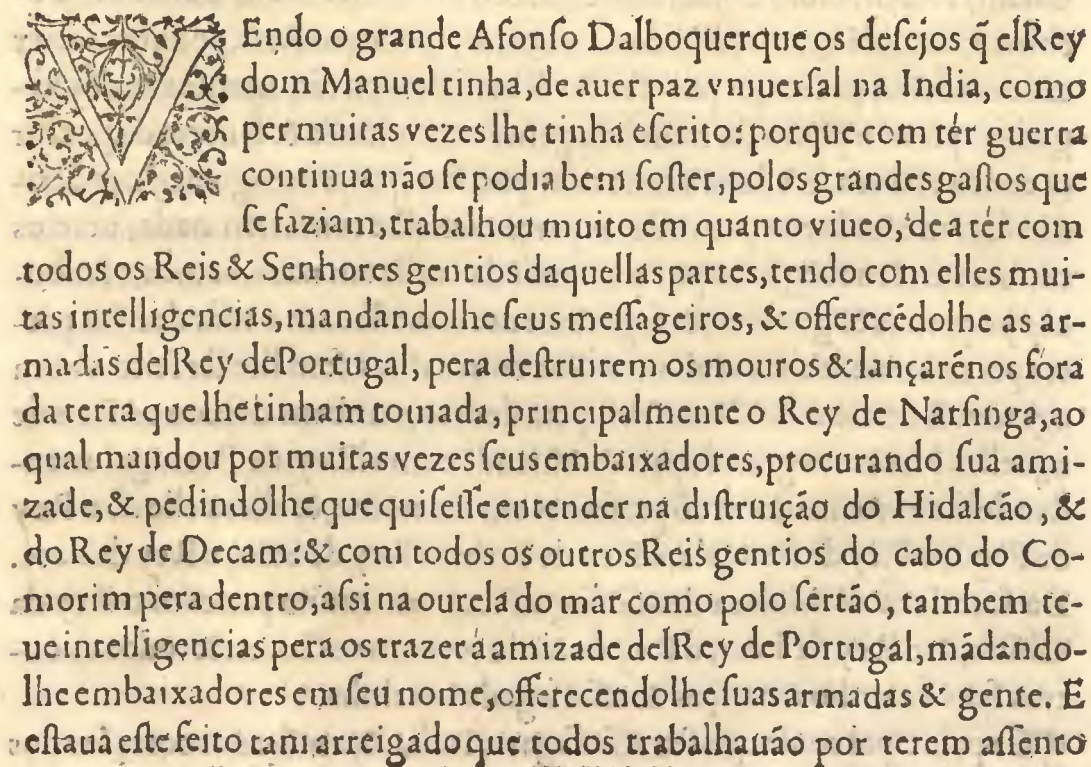 VEndo o grande Afonſo Dalboquerque os deſejos q̃ elRey
dom Manuel tinha, de auer paz vniuerſal na India, como
per muitas vezes lhe tinha eſcrito: porque com tér guerra
continua não ſe podia bem ſoſter, polos grandes gaſtos que
ſe faziam, trabalhou muito em quánto viueo, de a tér com
todos os Reis & Senhores gentios daquellas partes, tendo com elles mui-
tas intelligencias, mandandolhe ſeus meſſageiros, & offerecédolhe as ar-
madas delRey de Portugal, pera deſtruirem os mouros & lançarénos fóra
da terra que lhe tinham tomada, principalmente o Rey de Narſinga, ao
qual mandou por muitas vezes ſeus embaixadores, procurando ſua ami-
zade, & pedindolhe que quiſeſſe entender na diſtruição do Hidalcão, &
do Rey de Decam: & com todos os outros Reis gentios do cabo do Co-
morim pera dentro, aſsi na ourela do mar como polo ſertão, tambem te-
ue intelligencias pera os trazer á amizade delRey de Portugal, mãdando-
lhe embaixadores em ſeu nome, offerecendolhe ſuas armadas & gente. E
eſtaua eſte feito tam arreigado que todos trabalhauão por terem aſſento